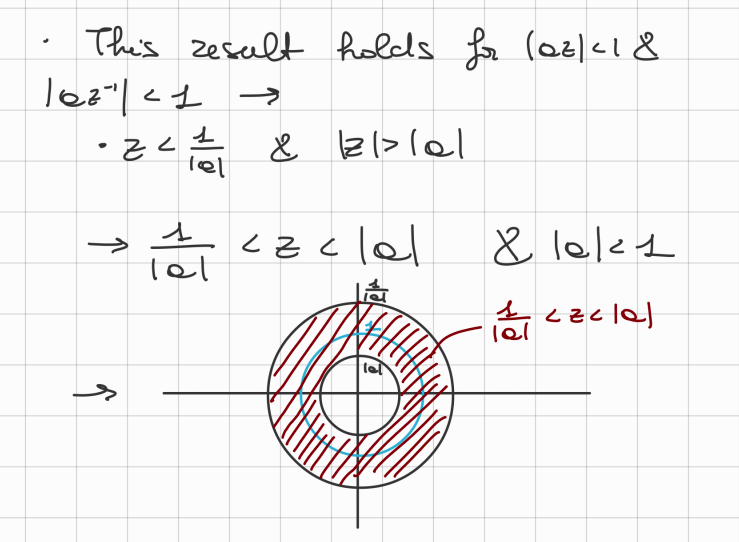 · This result holds for |az|<1 &
|az⁻¹| < 1 →
· z < 1/|a| & |z|>|a|
→ 1/|a| < z < |a| & |a|<1
1/|a|
1/|a| < z < |a|
1
|a|
→